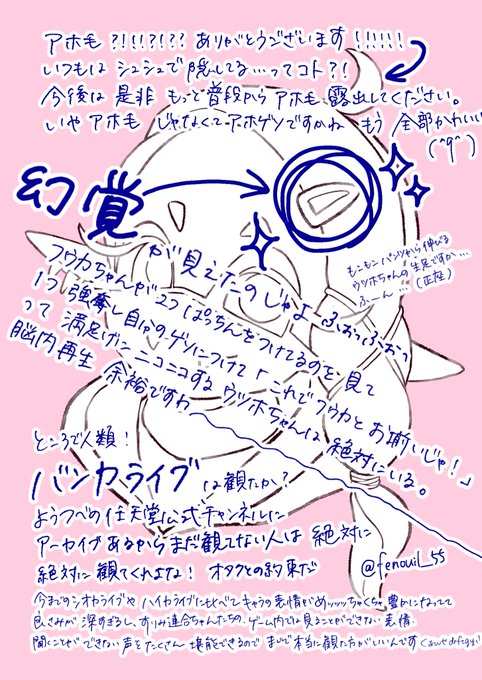 アホ毛?!!!?!??ありがとうございます!!!!!!
いつもはシュシュで隠してる…ってコト?!
今後は是非もっと普段からアホ毛露出してください。
いやアホ毛じゃなくてアホゲソですかね もう全部かわいい
(^q^)
幻覚
が見えたのじゃよ ふおっふおっ
フウカちゃんが2つぱっちんをつけてるのを見て
1つ強奪し自分のゲソにつけて「これでフウカとお揃いじゃ!」
って満足げにニコニコするウツホちゃんは絶対にいる。
脳内再生余裕ですわ
もこもこパンツから伸びる
ウツホちゃんの生足ですか…
ふーん…(正座)
ところで人類!
バンカライブは観たか?
ようつべの任天堂公式チャンネルに
アーカイブあるからまだ観てない人は絶対に
絶対に観てくれよな! オタクとの約束だ
@fenouil_55
今までのシオカライブやハイカライブに比べてキャラの表情がめッッッちゃくちゃ豊かになってて
すりみ連合ちゃんたちの、ゲーム内では見ることができない表情、
聞くことができない声をたくさん堪能できるのでまじで本当に観た方がいいんです